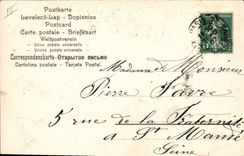 Postkarte
Levelező-Lap - Dopisnice
Postcard
Carte postale - Briefkaart
Weltpostverein
Union postale universelle
Correspondenzkarte-Открытое письмо
Cartolina postale - Tarjeta Postal
Madame et Monsieur
Pierre Favre
5 rue de la Fraternité
à St Mandé
Seine